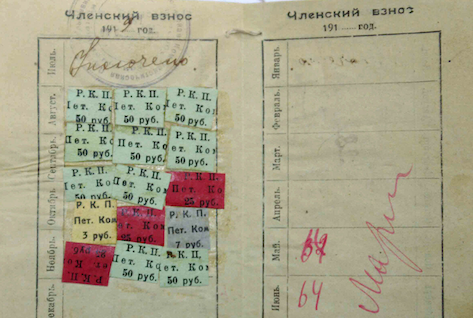 Членский взнос
191 2 год.
Июль.
Включено
Август.
Р. К. П.
Пет. Ком
50 руб.
Р. К. П.
Пет. Ком
50 руб.
Р. К. П.
Пет. Ком
50 руб.
Сентябрь.
Р. К. П.
Пет. Ком
50 руб.
Р. К. П.
Пет. Ком
50 руб.
Р. К. П.
Пет. Ком
50 руб.
Октябрь.
Р. К. П.
Пет. Ком
50 руб.
Р. К. П.
Пет. Ком
50 руб.
Р. К. П.
Пет. Ком
25 руб.
Ноябрь.
Р. К. П.
Пет. Ком
3 руб.
Р. К. П.
Пет. Ком
25 руб.
Р. К. П.
Пет. Ком
7 руб.
Декабрь.
Р. К. П.
Р. К. П.
Пет. Ком
50 руб.
Р. К. П.
Пет. Ком
50 руб.
Членский взнос
191 год.
Январь.
Февраль.
Март.
Апрель.
Май.
Июнь.
64